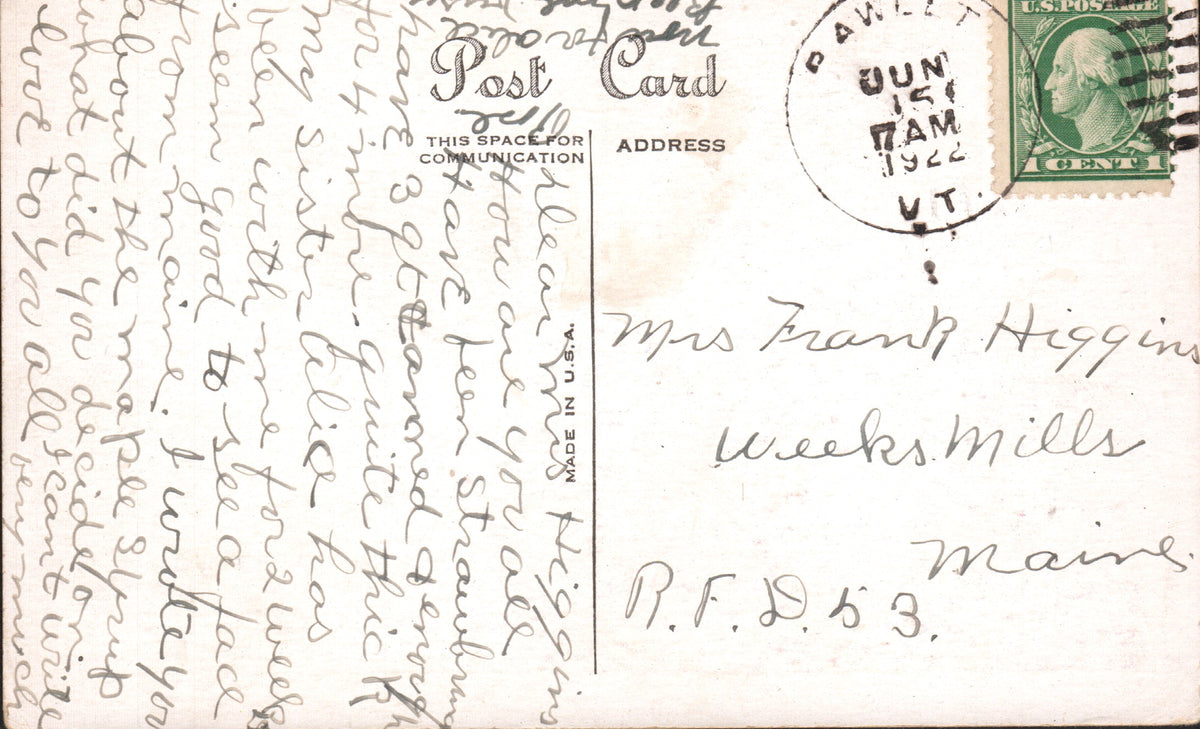 Post Card
THIS SPACE FOR
COMMUNICATION
ADDRESS
MADE IN U.S.A.
PAWLET
JUN
15
7 AM
1922
VT.
U.S. POSTAGE
1 CENT 1
Mrs Frank Higgins
Weeks Mills
Maine
R.F.D. 53.
Dear Mrs Higgins
How are you all
Have been Strawbrying
have 3 qt caned & enough
for 4 more. quite thick
my sister Alice has
been with me for 2 weeks
seem good to see a face
from maine. I wrote you
about the maple Syrup
what did you decide on
love to you all I cant write
very much